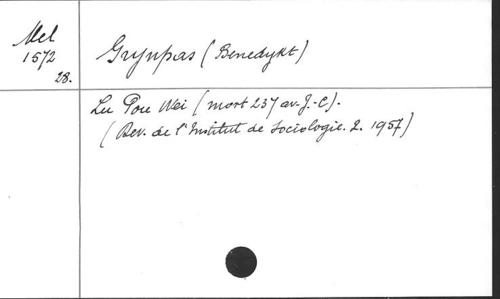 Mel
1572
28.
Grynpas (Benedykt)
Lu Pou Wei (mort 237 av. J.-C).
(Rev. de l'Institut de Sociologie. 2. 1957)